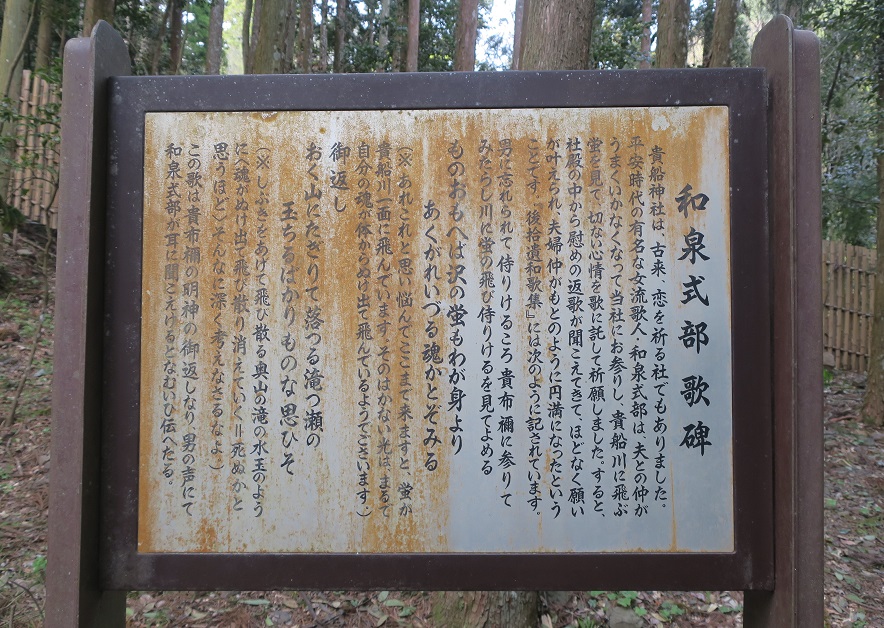 和泉式部歌碑
貴船神社は、古来、恋を祈る社でもありました。
平安時代の有名な女流歌人・和泉式部は、夫との仲が
うまくいかなくなって当社にお参りし、貴船川に飛ぶ
蛍を見て、切ない心情を歌に託して祈願しました。すると、
社殿の中から慰めの返歌が聞こえてきて、ほどなく願い
が叶えられ、夫婦仲がもとのように円満になったという
ことです。『後拾遺和歌集』には次のように記されています。
男に忘れられて侍りけるころ貴布禰に参りて
みたらし川に蛍の飛び侍りけるを見てよめる
ものおもへば沢の蛍もわが身より
あくがれいづる魂かとぞみる
(※ あれこれと思い悩んでここまで来ますと、蛍が
貴船川一面に飛んでいます。そのはかない光は、まるで
自分の魂が体からぬけ出て飛んでいるようでございます)
御返し
おく山にたぎりて落つる滝つ瀬の
玉ちるばかりものな思ひそ
(※ しぶきをあげて飛び散る奥山の滝の水玉のよう
に〈魂がぬけ出て飛び散り消えていく=死ぬかと
思うほど〉そんなに深く考えなさるなよ)
この歌は貴布禰の明神の御返しなり、男の声にて
和泉式部が耳に聞こえけるとなむいひ伝へたる。